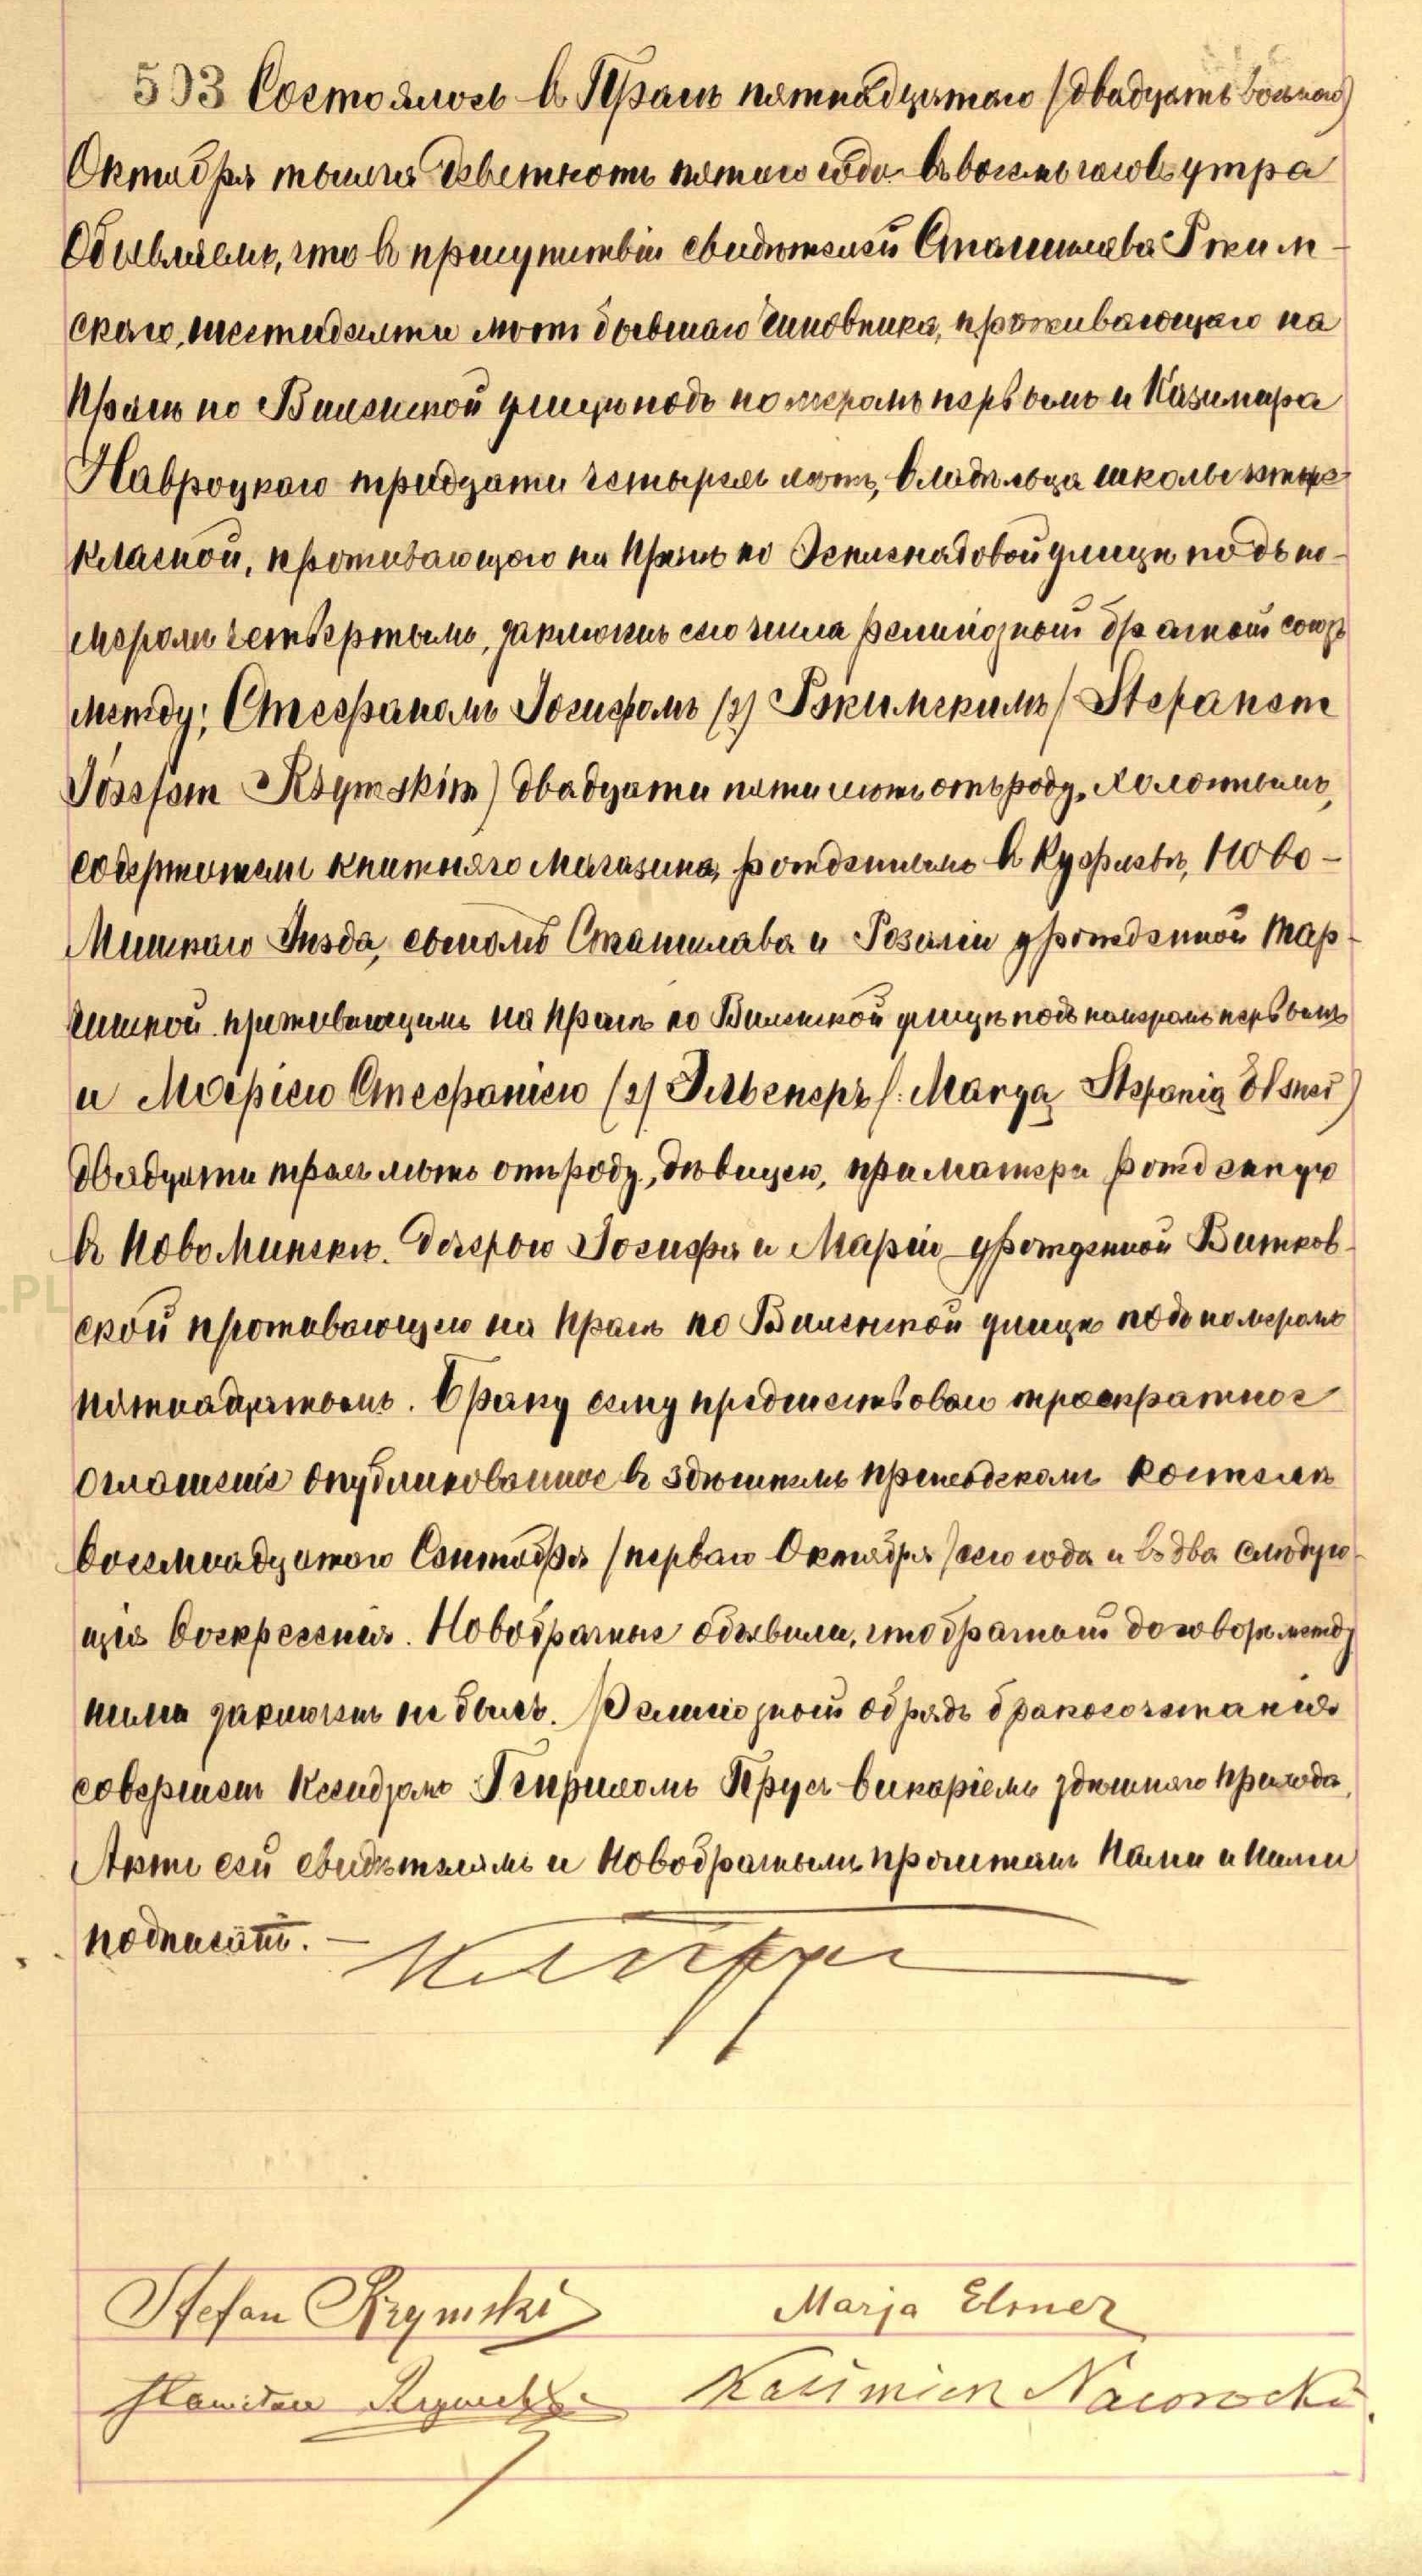 593 Состоялось въ Прагѣ пятнадцатаго (двадцать восьмаго)
Октября тысяча девятьсотъ пятаго года въ восемь часовъ утра
Объявляемъ, что въ присутствіи свидѣтелей Станислава Ржим-
скаго, шестидесяти лѣтъ бывшаго чиновника, проживающаго на
Прагѣ по Виленской улицѣ подъ номеромъ первымъ и Казимира
Навроцкаго тридцати четырехъ лѣтъ, владѣльца школы
класной, проживающаго на Прагѣ по улицѣ подъ но-
меромъ четвертымъ, заключенъ сего числа религіозный брачный союзъ
между: Стефаномъ Іосифомъ (2) Ржимскимъ (Stefanem
Józefem Rzymskim) двадцати пяти лѣтъ отъ роду, холостымъ,
содержателемъ книжнаго магазина, рожденнымъ въ Куфлевѣ, Ново-
Минскаго уѣзда, сыномъ Станислава и Розаліи урожденной
проживающимъ на Прагѣ по Виленской улицѣ подъ номеромъ первымъ
и Маріею Стефаніею (2) Эльснеръ (: Marya Stefania Elsner)
двадцати трехъ лѣтъ отъ роду, дѣвицею, при матери рожденную
въ НовоМинскѣ. дочерью Іосифа и Маріи урожденной Витков-
ской проживающею на Прагѣ по Виленской улицѣ подъ номеромъ
пятнадцатымъ. Браку сему предшествовало троекратное
оглашеніе опубликованное въ здѣшнемъ приходскомъ костелѣ
восемнадцатаго Сентября (перваго Октября) сего года и въ два слѣдую-
щія воскресенія. Новобрачные объявили, что брачный договоръ между
ними заключенъ не былъ. Религіозный обрядъ бракосочетанія
совершенъ Ксендзомъ Генрихомъ Прусъ викаріемъ здѣшняго прихода.
Актъ сей свидѣтелямъ и новобрачнымъ прочитанъ Нами и ними
подписанъ. —
Stefan Rzymski Marja Elsner
Stanisław Rzymski Kazimierz Nawrocki